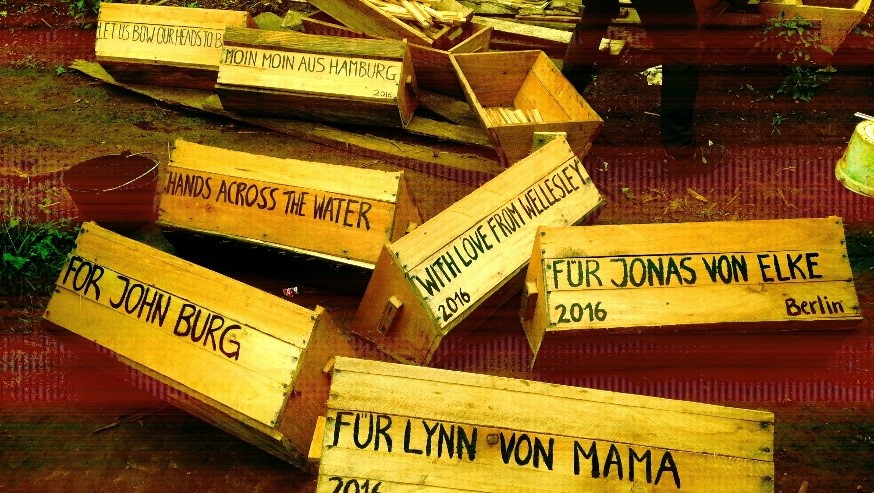 LET US BOW OUR HEADS TO
MOIN MOIN AUS HAMBURG
2016
HANDS ACROSS THE WATER
WITH LOVE FROM WELLESLEY
2016
FÜR JONAS VON ELKE
2016 Berlin
FOR JOHN BURG
FÜR LYNN VON MAMA
2016